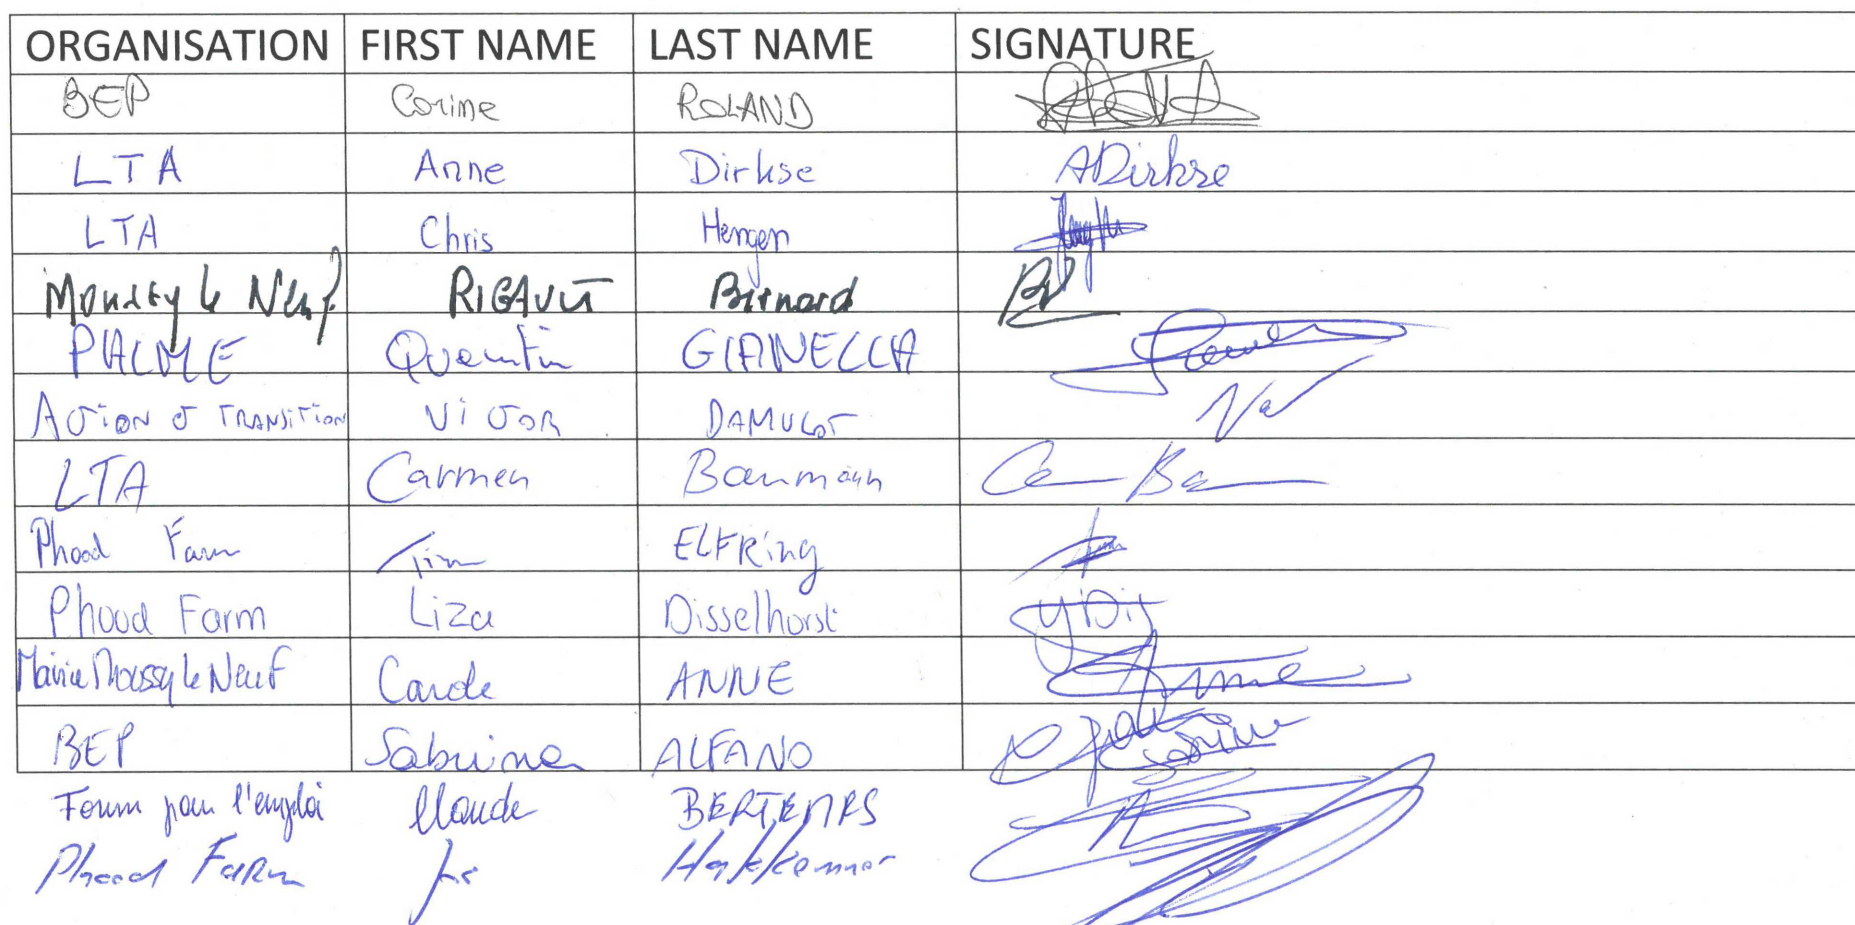 ORGANISATION FIRST NAME LAST NAME SIGNATURE
BEP Corine ROLAND
LTA Anne Dirkse ADirkse
LTA Chris Hengen
Moussy le Neuf RIGAULT Bernard
PIALME Quentin GIANELLIA
ACTION & TRANSITION VICTOR DAMULOT
LTA Carmen Baumann
Phood Farm Tim ELFRing
Phood Farm Liza Disselhorst
Mairie Moussy le Neuf Carole ANNE
BEP Sabrina ALFANO
Forum pour l'emploi Claude BERTEMES
Phood FaRm